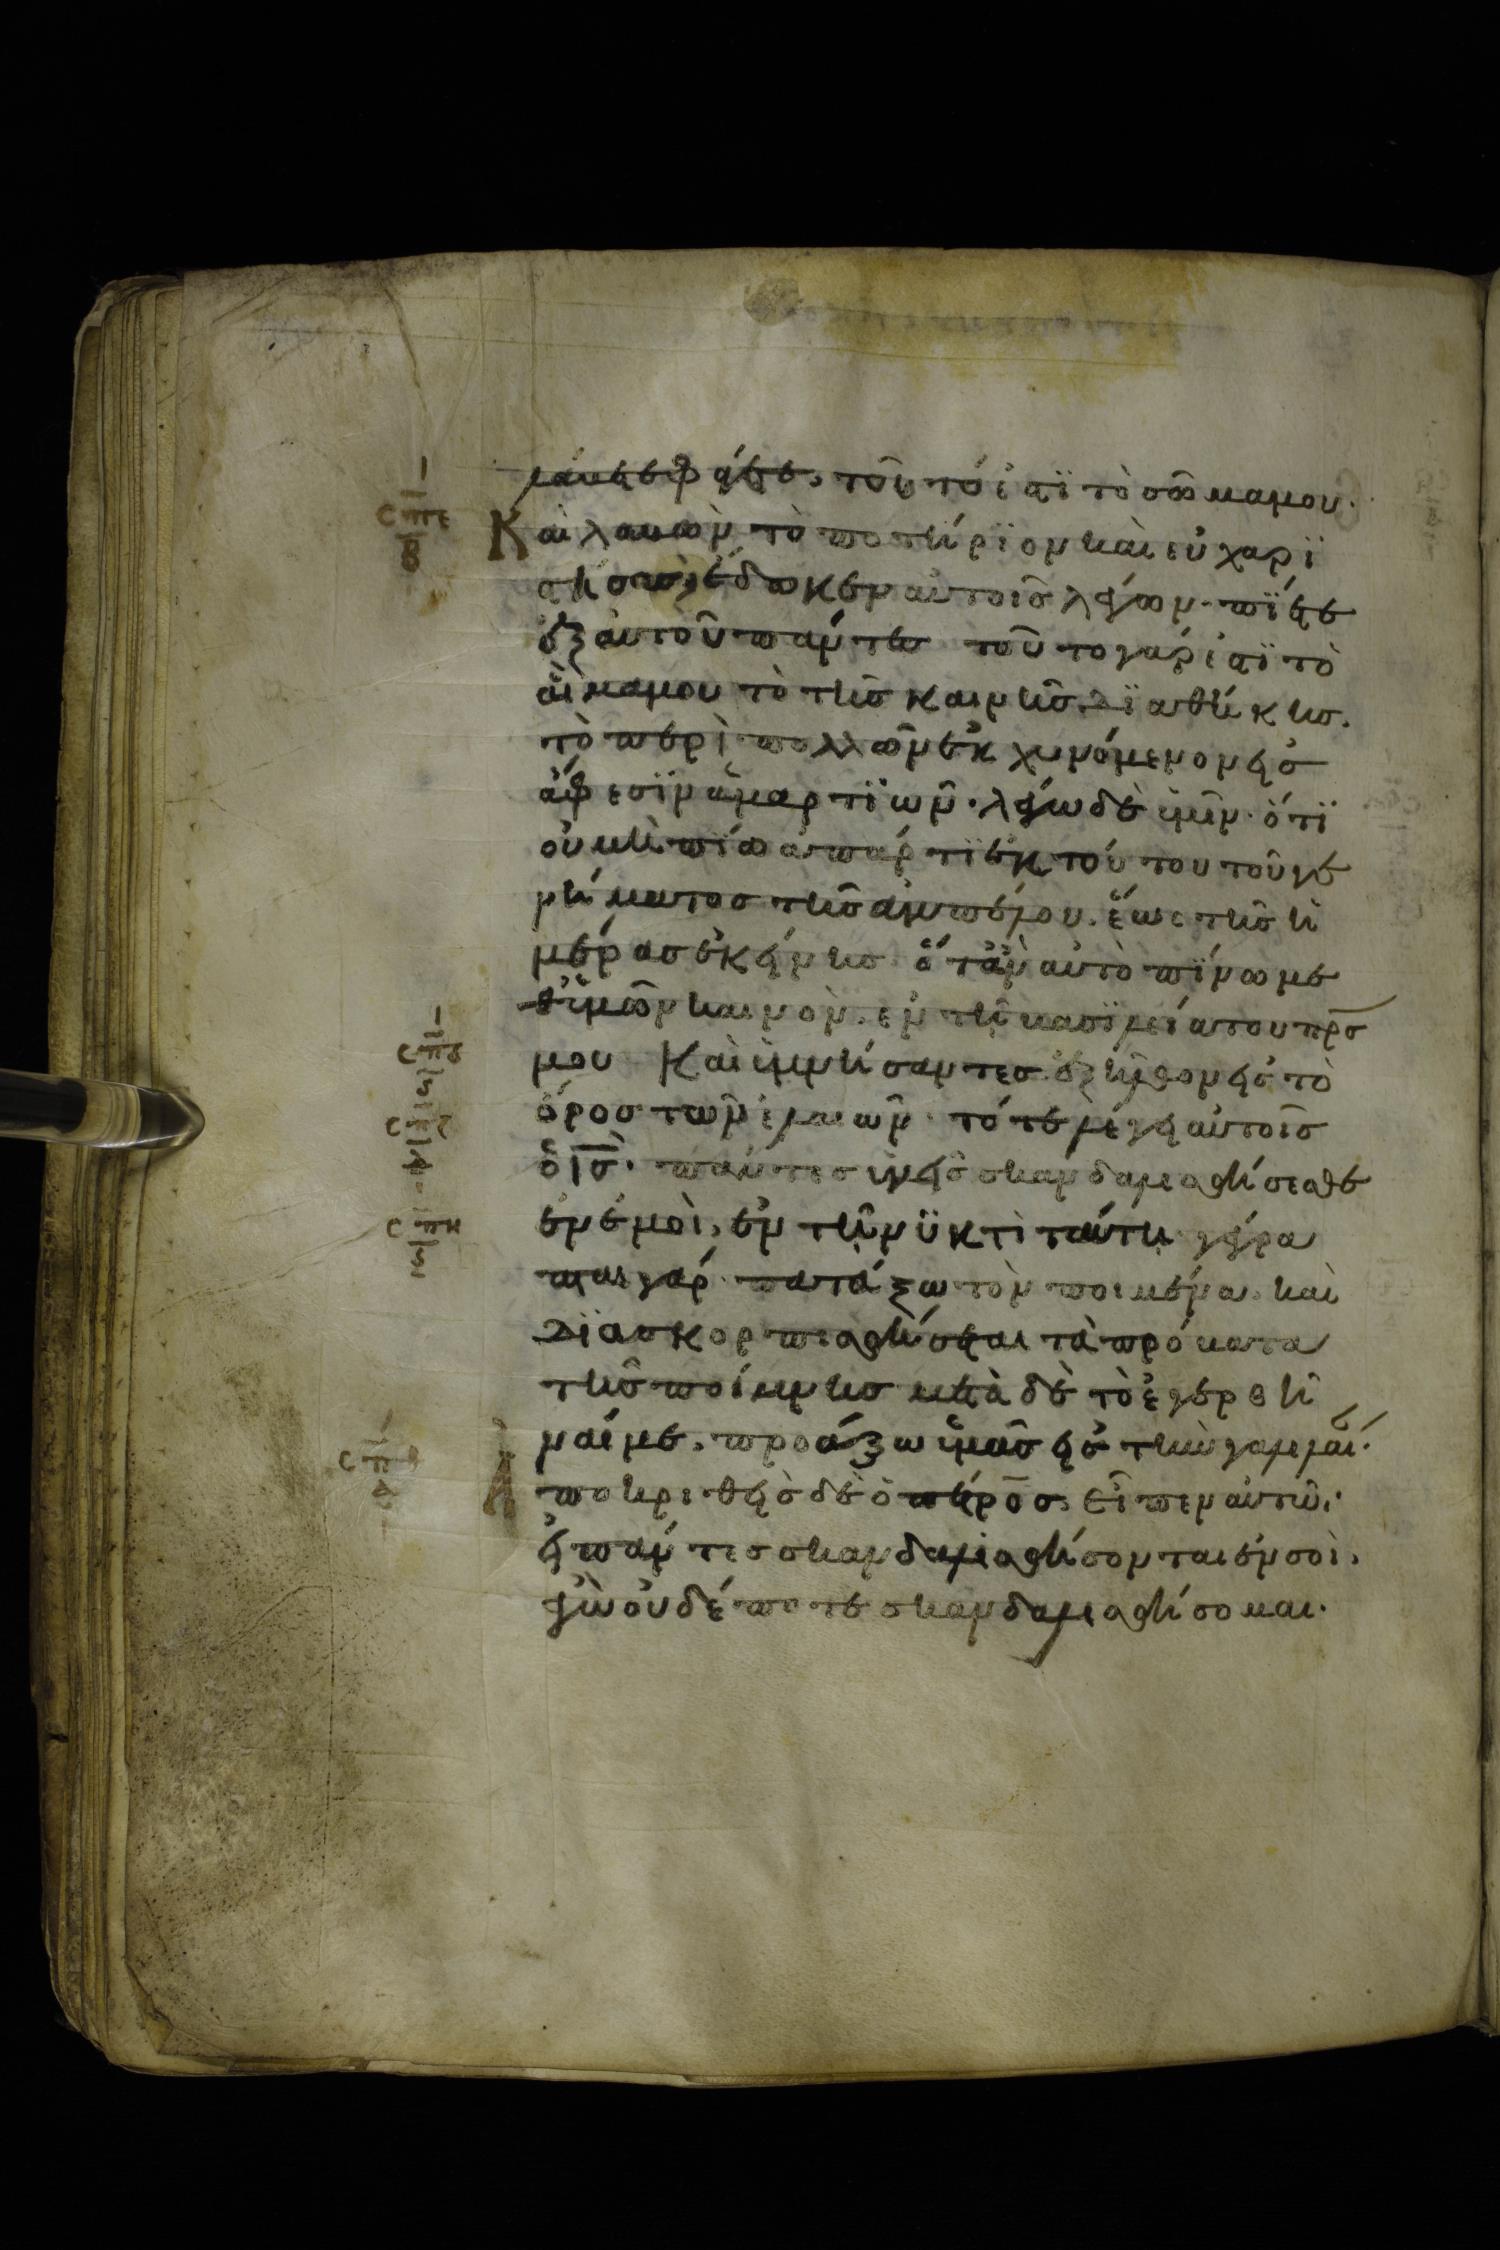 λάβετε φάγετε, τοῦτό ἐστϊ τὸ σῶμα μου·
σ̅π̅ε̅ β Καὶ λαβὼν τὸ ποτήρϊον καὶ εὐχαρϊ
στήσας, ἔδωκεν αὐτοῖς λέγων· πϊέτε
ἐξ αὐτοῦ πάντες τοῦτο γάρ ἐστϊ τὸ
αἷμα μου τὸ τῆς καινῆς δϊαθήκης.
τὸ περὶ πολλῶν ἐκχυνόμενον εἰς
ἄφεσϊν ἁμαρτϊῶν· λέγω δὲ ὑμῖν· ὅτϊ
οὐ μὴ πϊω ἀπάρτϊ ἐκ τούτου τοῦ γε
νήματος τῆς ἀμπέλου. ἕως τῆς ἡ
μέρας ἐκείνης ὅταν αὐτὸ πϊνω με
θ' ὑμῶν καινὸν. ἐν τῆ βασϊλεία τοῦ πρ̅ς
σ̅π̅ς̅ ς μου Καὶ ὑμνήσαντες ἐξῆλθον εἰς τὸ
σ̅π̅ζ̅ δ ὄρος τῶν ἐλαιῶν· τότε λέγει αὐτοῖς
ὁ ι̅ς̅· πάντες ὑμεῖς σκανδαλισθήσεσθε
σ̅π̅η̅ ς ἐν ἐμοὶ, ἐν τῆ νϋκτὶ ταύτη γέγρα
πται γάρ· πατάξω τὸν ποιμένα. καὶ
δϊασκορπισθήσεται τὰ πρόβατα
τῆς ποίμνης μετὰ δὲ τὸ ἐγερθῆ
ναί με, προάξω ὑμᾶς εἰς τὴν γαλιλαί·
σ̅π̅θ̅ α Ἀποκριθεὶς δὲ ὁ πέτρος, εἶπεν αὐτῶ·
εἰ πάντες σκανδαλισθήσονται ἐν σοὶ,
ἐγὼ οὐδέποτε σκανδαλισθήσομαι·